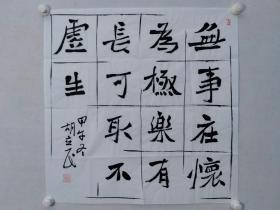 無事在懷
為極樂有
長可取不
虛生
甲午冬
胡立民